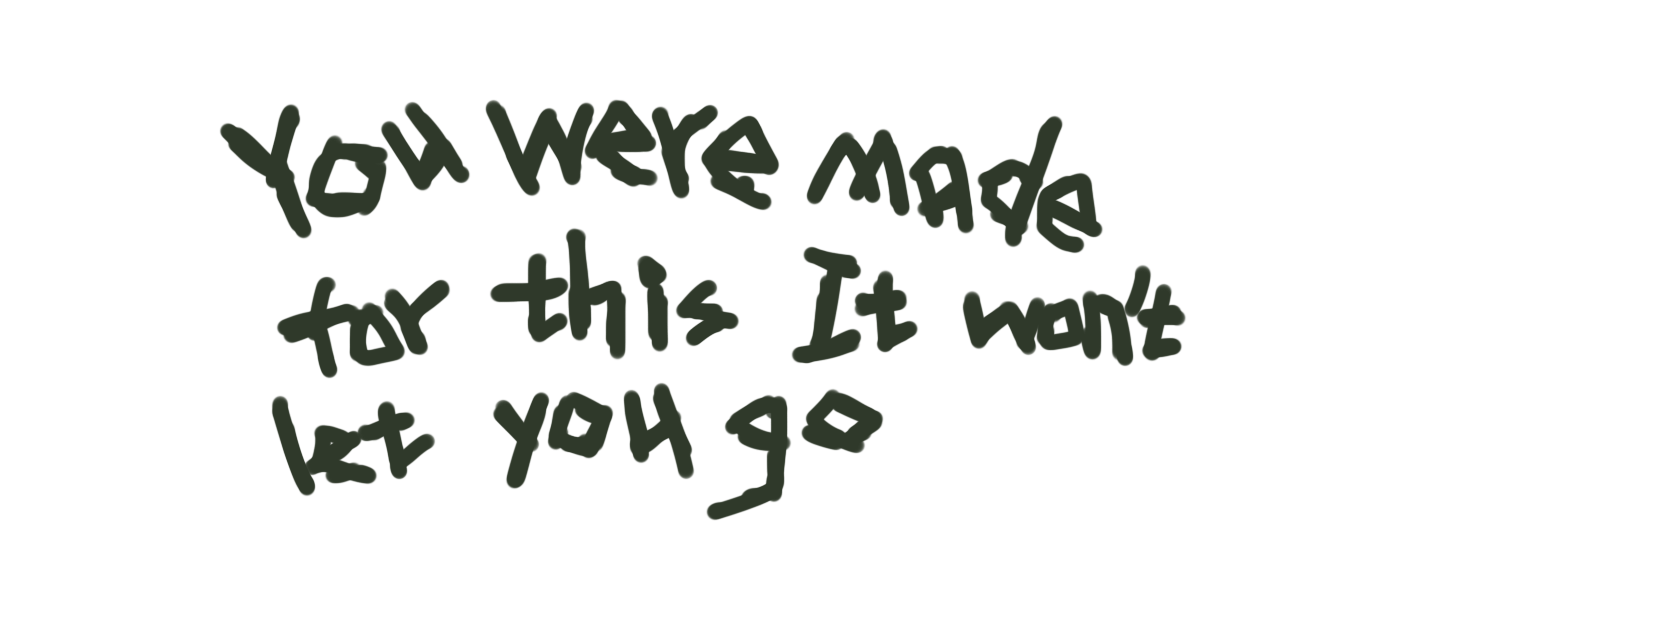 You were made
for this It won't
let you go